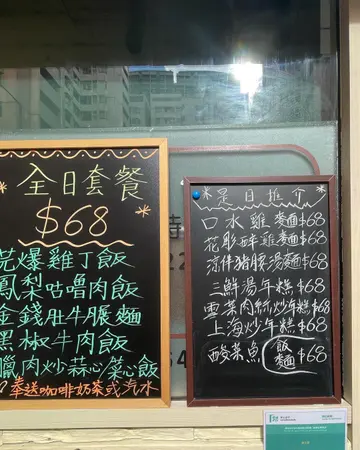 *全日套餐*
$68
芫爆雞丁飯
鳳梨咕嚕肉飯
金錢肚牛腩麵
黑椒牛肉飯
臘肉炒蒜心/菜心飯
奉送咖啡奶茶或汽水
*是日推介*
口水雞麵$68
花彫醉雞麵$68
涼伴豬腰湯麵$68
三鮮湯年糕$68
雪菜肉絲炒年糕$68
上海炒年糕$68
酸菜魚飯麵$68